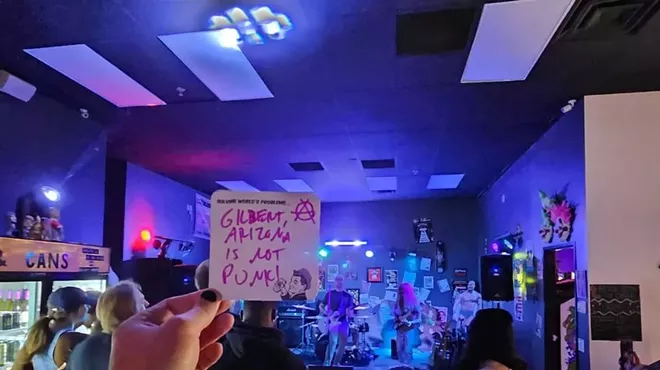 SOLVING WORLD'S PROBLEMS...
GILBERT,
ARIZONA
IS NOT
PUNK!
& CANS